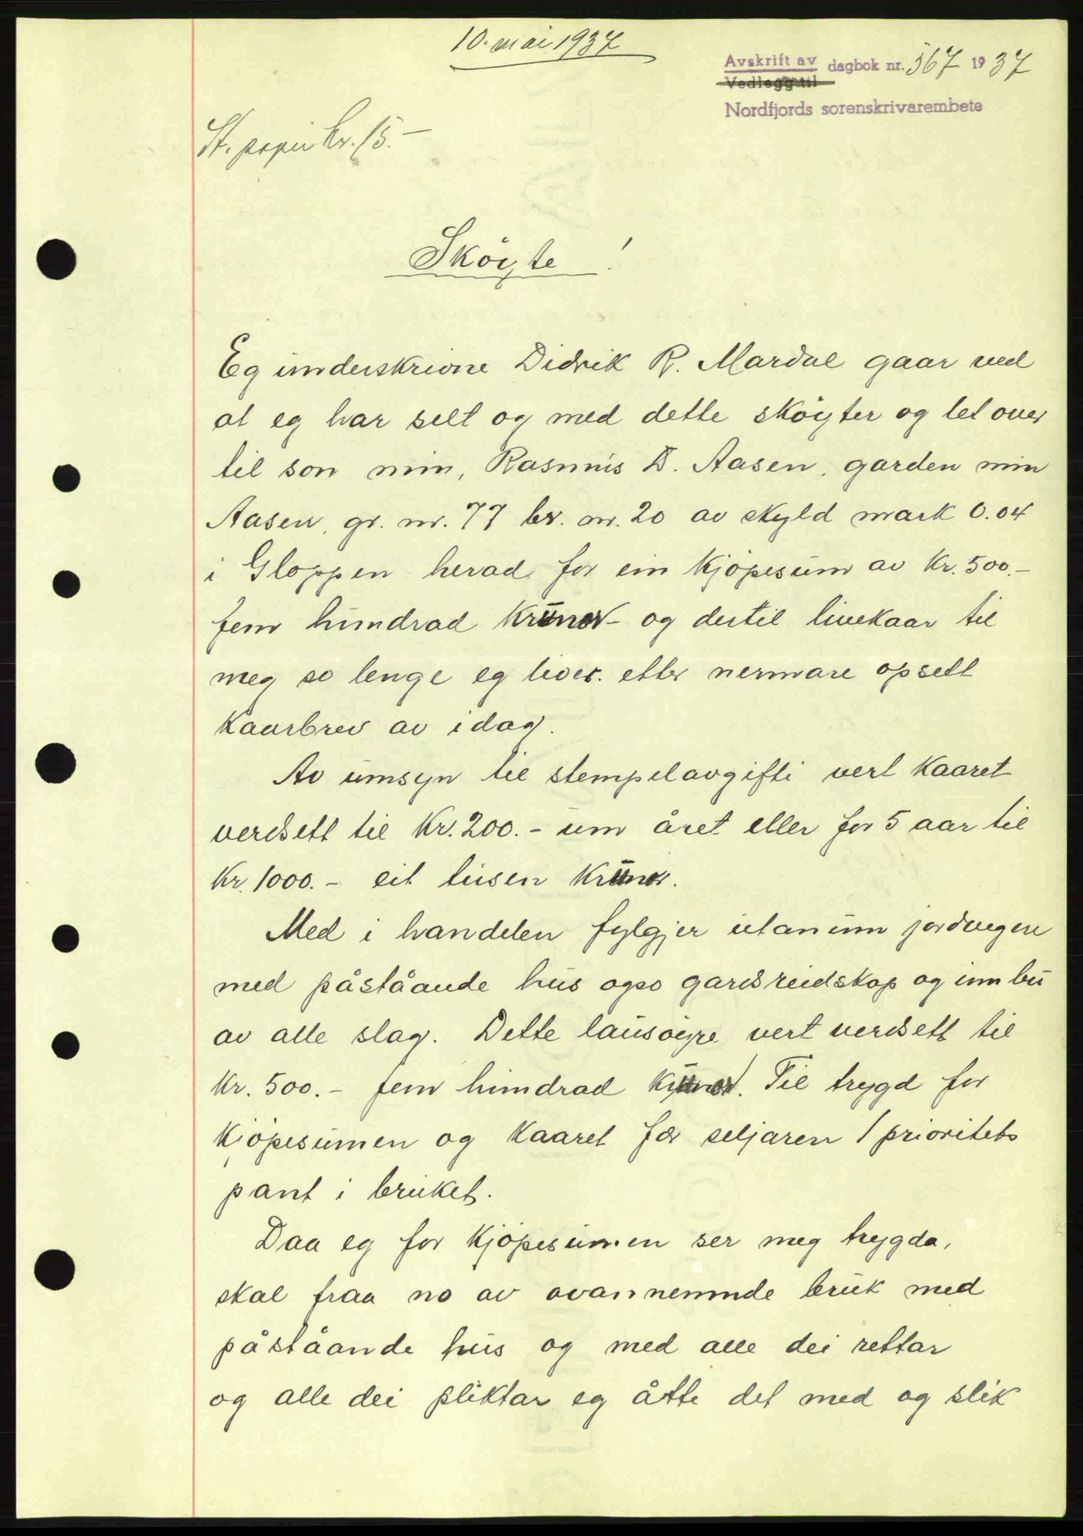 10. mai 1937
Avskrift av dagbok nr. 567 1937
Vedlegg til
Nordfjords sorenskrivarembete
St. papir kr. 15.-
Skøyte!
Eg underskrivne Didrik R. Mardal gaar ved
at eg har selt og med dette skøyter og let over
til son min, Rasmus D. Aasen, garden min
Aasen, gr. nr. 77 br. nr. 20 av skyld mark 0.04
i Gloppen herad for ein kjøpesum av kr. 500.-
fem hundrad kruner - og dertil livekaar til
meg so lenge eg liver etter nermare opsett
kaarbrev av idag.
Av umsyn til stempelavgifti vert kaaret
verdsett til kr. 200.- um året eller for 5 aar til
kr. 1000.- eit tusen kruner.
Med i handelen fylgjer utanum jordvegen
med påståande hus ogso gardsreidskap og innbu
av alle slag. Dette lausøyre vert verdsett til
kr. 500.- fem hundrad kruner. Til trygd for
kjøpesumen og kaaret fær seljaren 1 prioritets
pant i bruket.
Daa eg for kjøpesumen ser meg trygda,
skal fraa no av ovannemnde bruk med
påståande hus og med alle dei rettar
og alle dei pliktar eg åtte det med og slik